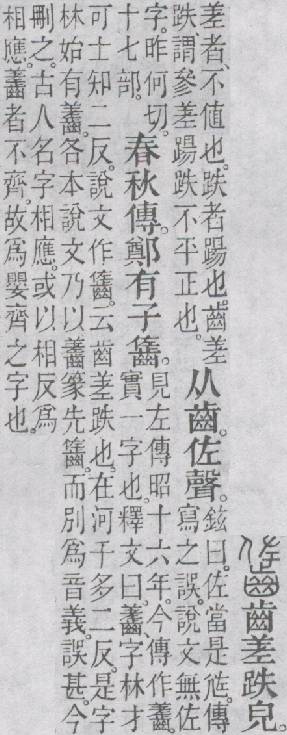 齒差跌皃。
差者、不值也。跌者、踼也。齒差
跌、謂參差踼跌不平正也。
从齒。佐聲。
鉉曰。佐當是㝾。傳
寫之誤。說文無佐
字。昨何切。
十七部。
春秋傳。鄭有子𪘓。
見左傳昭十六年。今傳作齹。
實一字也。釋文曰。齹字林才
可士知二反。說文作𪘓。云齒差跌也。在河千多二反。是字
林始有齹。各本說文乃以齹篆先𪘓。而別爲音義。誤甚。今
刪之。古人名字相應。或以相反爲
相應。齹者不齊。故爲嬰齊之字也。